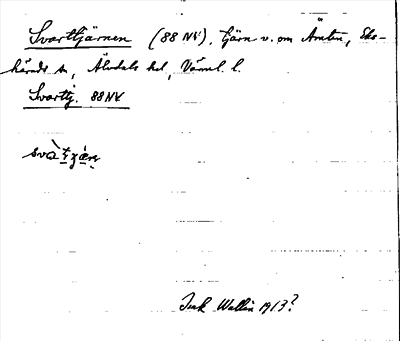 Svarttjärnen (88 NV). Tjärn v. om Ämten, Eks-
härads sn, Älvdals hd, Värml. l.
Svarttj. 88 NV
Wallin 1913?